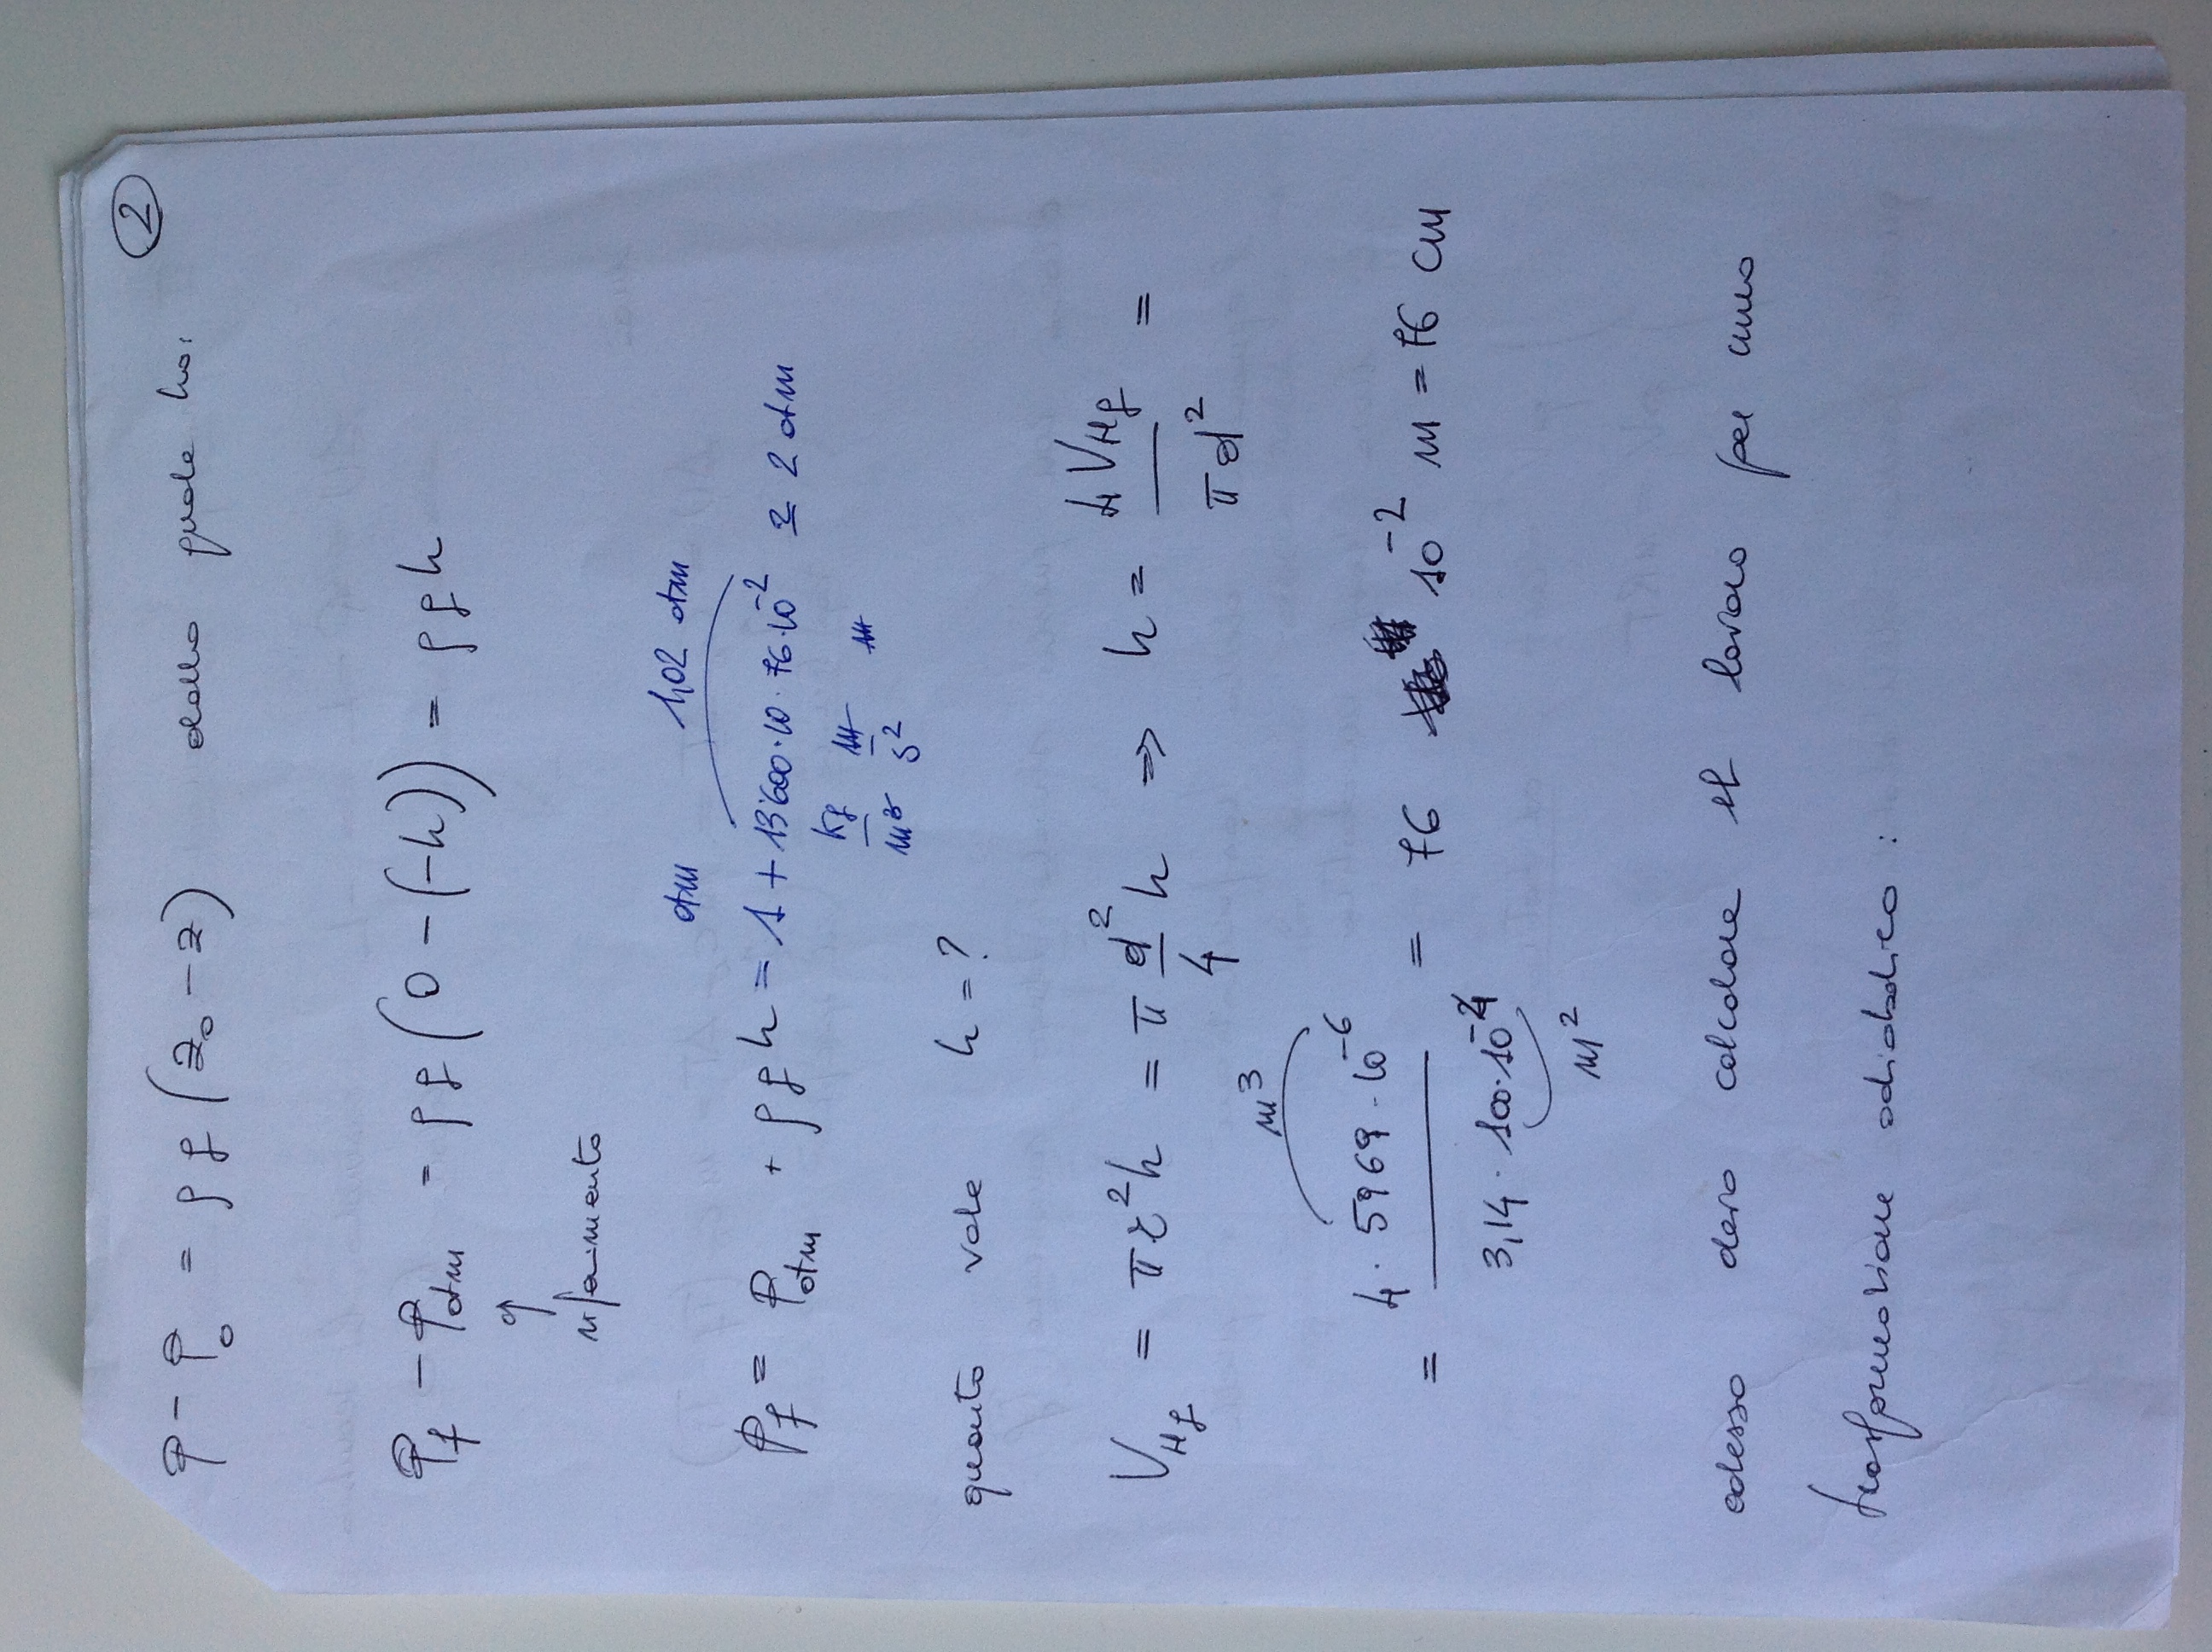 2
p - p₀ = ρ g (z₀ - z) dalla quale ho:
p_f - p_atm = ρ g (0 - (-h)) = ρ g h
↑
riferimento
atm 1,02 atm
p_f = p_atm + ρ g h = 1 + 13600 · 10 · 76 · 10⁻² ≃ 2 atm
kg/m³ m/s² m
quanto vale h = ?
V_Hg = π r² h = π d²/4 h ⇒ h = 4 V_Hg / π d² =
m³
= 4 · 5969 · 10⁻⁶ / 3,14 · 100 · 10⁻⁴ = 76 10⁻² m = 76 cm
m²
adesso devo calcolare il lavoro per una
trasformazione adiabatica :